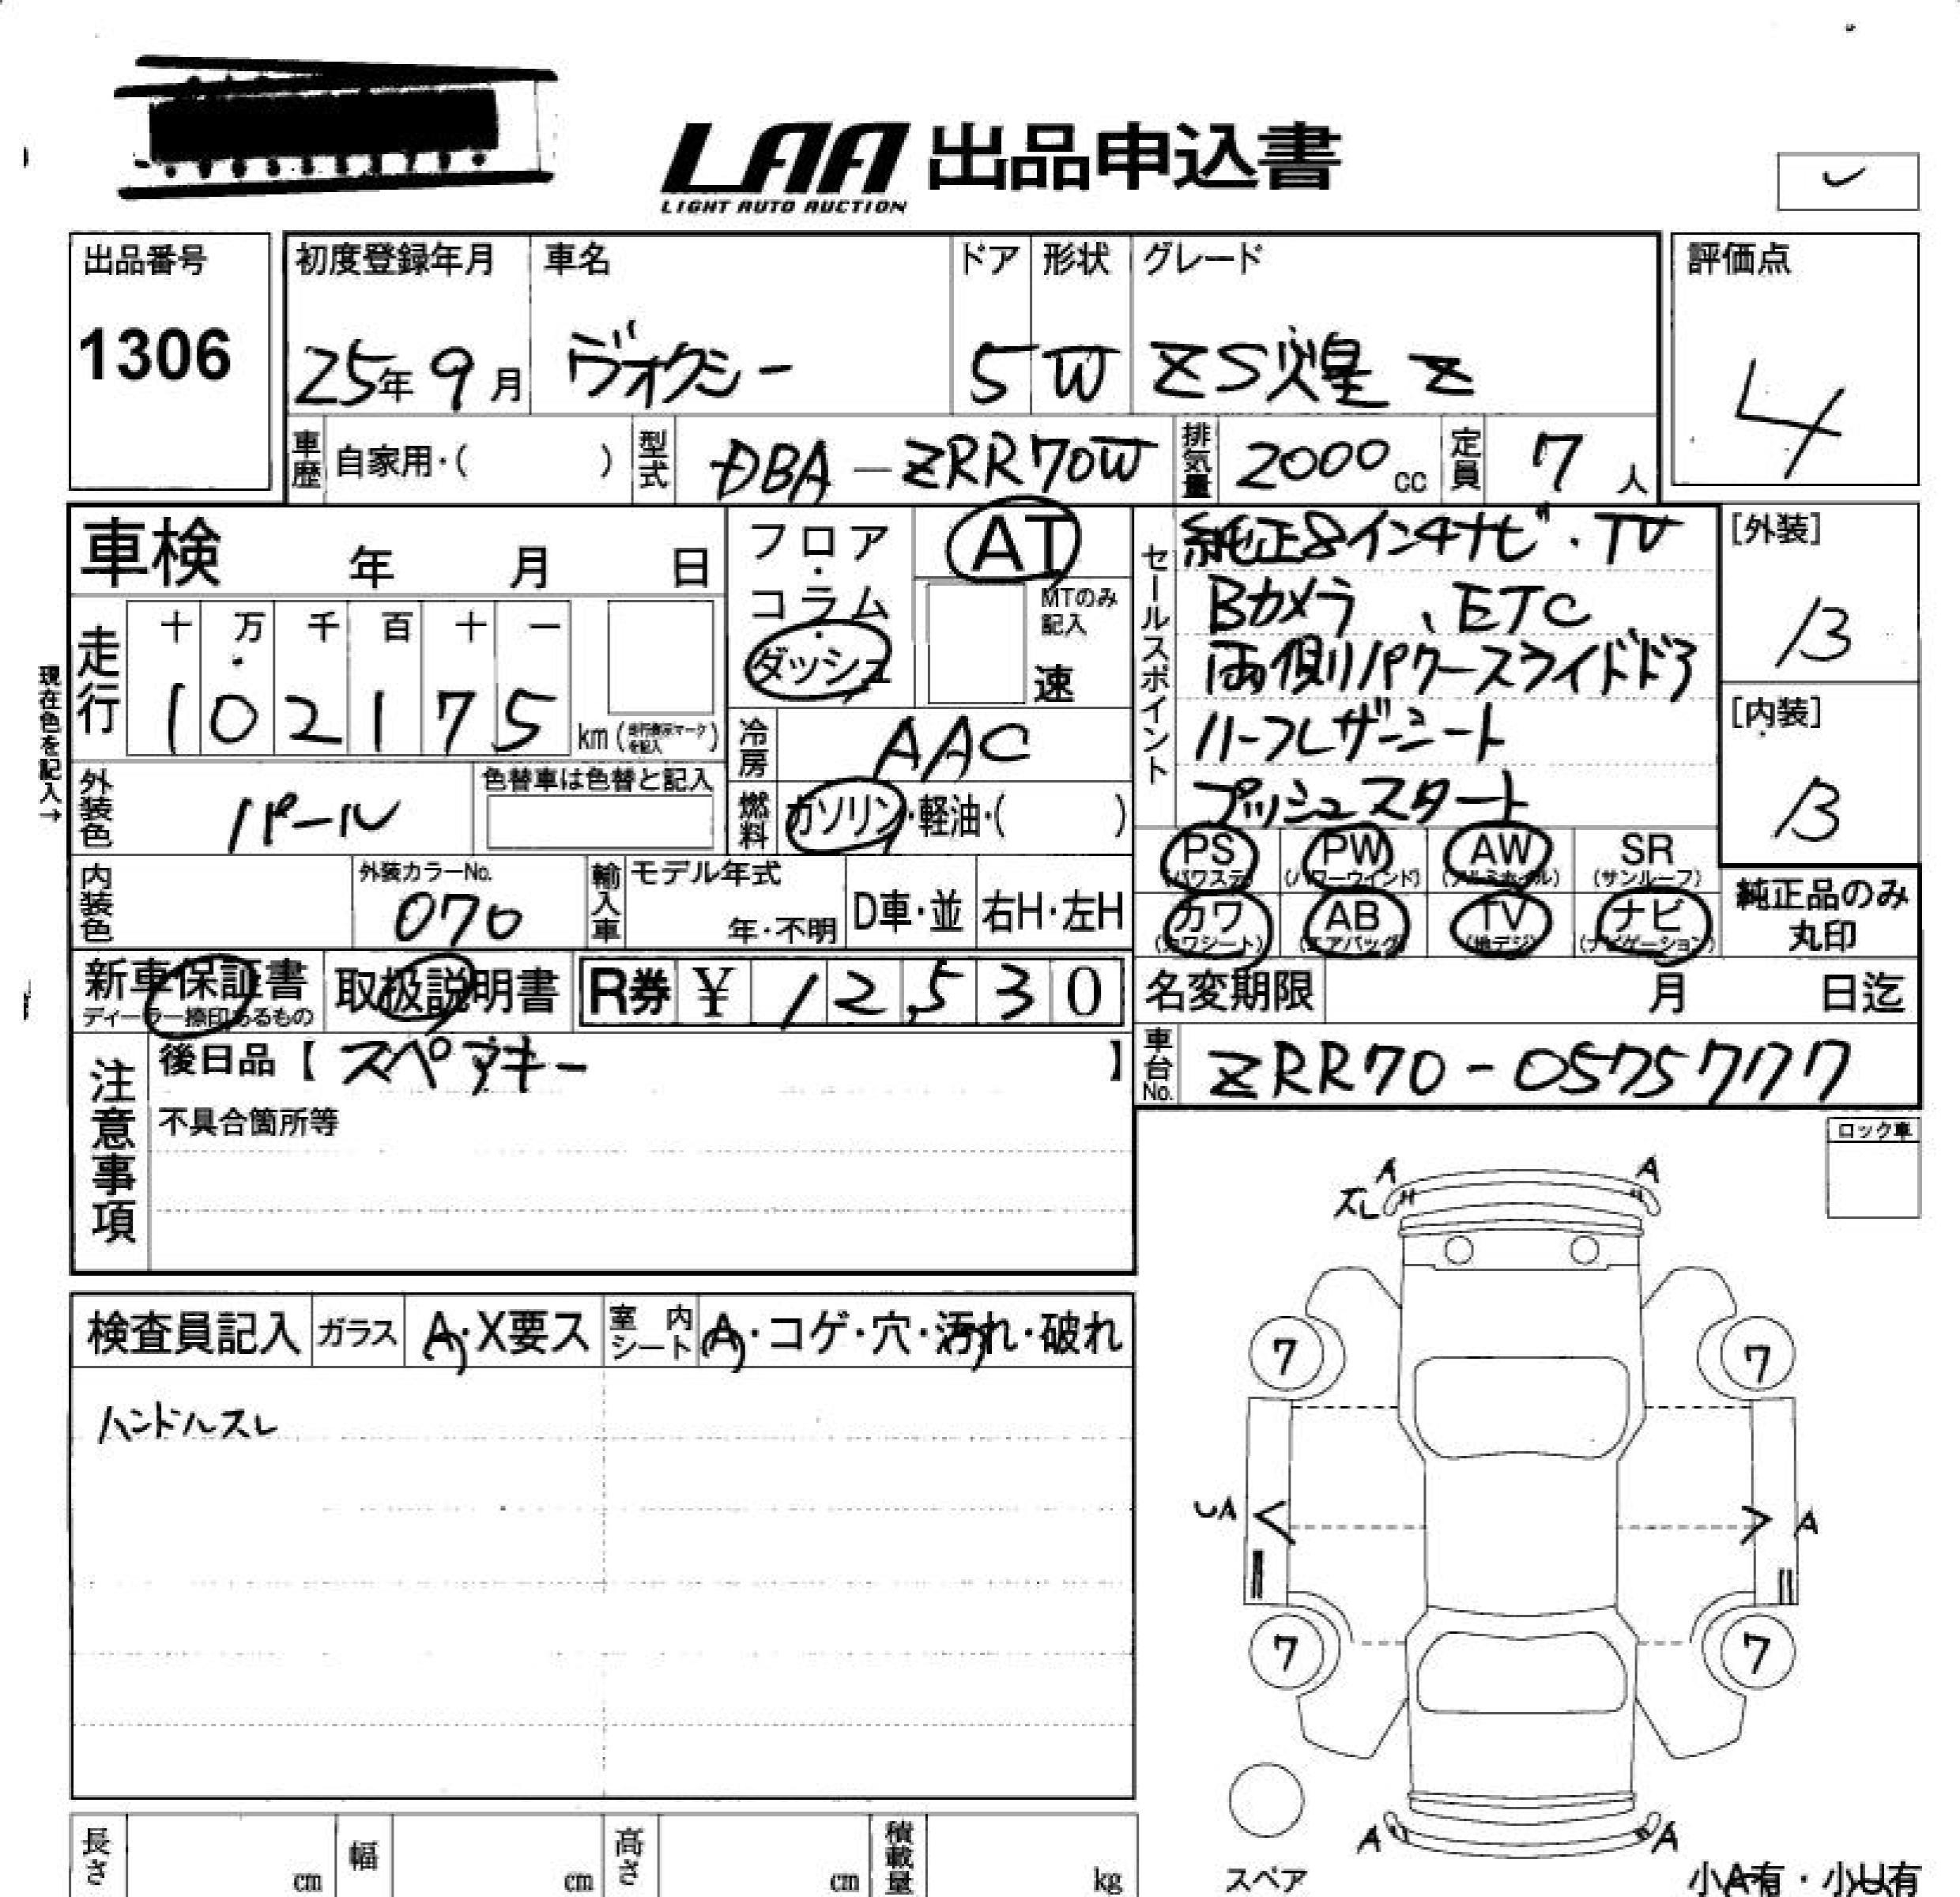 LAA 出品申込書
LIGHT AUTO AUCTION
出品番号
1306
初度登録年月 車名 ドア 形状 グレード
25年 9月 ヴォクシー 5 W ZS煌 Z
評価点
4
車歴 自家用・( ) 型式 DBA-ZRR70W 排気量 2000cc 定員 7人
車検 年 月 日
フロア・コラム・ダッシュ
AT
MTのみ記入
速
セールスポイント
純正8インチナビ・TV
Bカメラ、ETC
両側パワースライドドア
ハーフレザーシート
プッシュスタート
[外装]
B
[内装]
B
現在色を記入→
走行
十 万 千 百 十 一
1 0 2 1 7 5 km
冷房 AAC
燃料 ガソリン・軽油・( )
外装色 パール
色替車は色替と記入
内装色
外装カラーNo.
070
輸入車 モデル年式
年・不明
D車・並 右H・左H
PS (パワステ) PW (パワーウインド) AW (アルミホイル) SR (サンルーフ)
カワ (カワシート) AB (エアバッグ) TV (地デジ) ナビ (ナビゲーション)
純正品のみ
丸印
新車保証書
ディーラー捺印あるもの
取扱説明書
R券 ¥ 12,530
名変期限 月 日迄
車台No. ZRR70-0575777
注意事項
後日品【 スペアキー 】
不具合箇所等
ロック車
A A
スレ
検査員記入 ガラス A・X要ス 室内シート A・コゲ・穴・汚れ・破れ
ハンドルスレ
7 7
A A
7 7
A A
スペア
小A有・小U有
長さ cm 幅 cm 高さ cm 積載量 kg